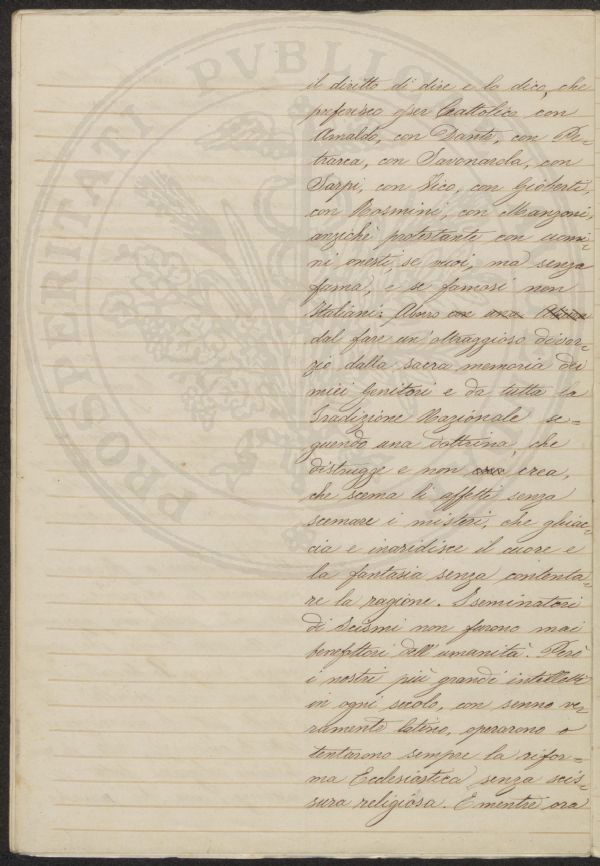 PROSPERITATI PVBLIC
il diritto di dire e lo dico, che
preferisco esser Cattolico con
Arnaldo, con Dante, con Pe=
trarca, con Savonarola, con
Sarpi, con Vico, con Gioberti,
con Rosmini, con Manzoni,
anzichè protestante con uomi=
ni onesti, se vuoi, ma senza
fama, e se famosi non
Italiani. Abor con una
dal fare un'oltraggioso divor=
zio dalla sacra memoria dei
miei Genitori e da tutta la
Tradizione Nazionale se=
guendo una dottrina, che
distrugge e non crea,
che scema li affetti senza
scemare i misteri, che ghiac=
cia e inaridisce il cuore e
la fantasia senza contenta=
re la ragione. I seminatori
di Scismi non furono mai
benefattori dell'umanità. Però
i nostri più grandi intelletti
in ogni secolo, con senno ve=
ramente latino, operarono o
tentarono sempre la rifor=
ma Ecclesiastica senza scis=
sura religiosa. E mentre ora